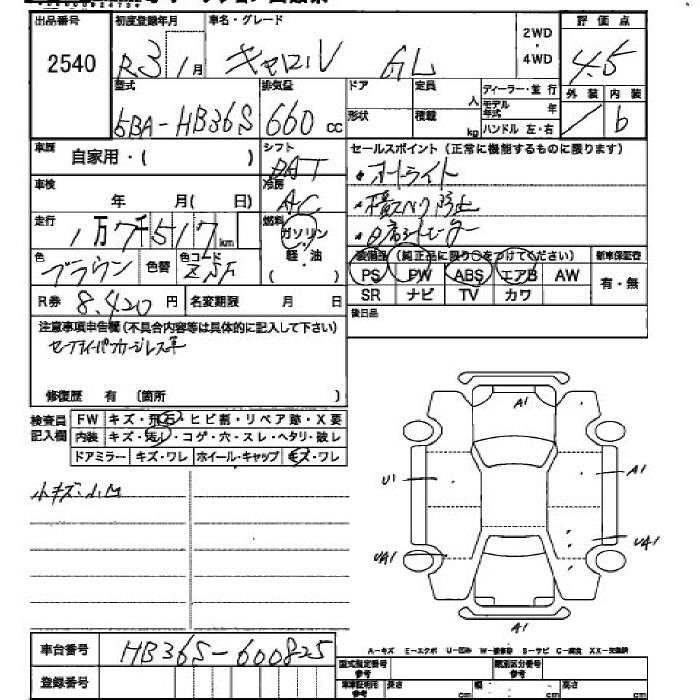 出品番号 初度登録年月 車名・グレード 2WD・4WD 評価点
2540 R3 1月 キャロル GL 4.5
型式 排気量 ドア 定員 人 ディーラー・並行 外装 内装
5BA-HB36S 660 cc 形状 積載 kg モデル年式 年 ハンドル 左・右 b
車歴 自家用・( ) シフト セールスポイント(正常に機能するものに限ります)
・オートライト
車検 年 月( 日) 冷房 AC
・横スベリ防止
走行 1万7千517km 燃料 ガソリン 軽・油 ( )
・W席シートヒーター
色 ブラウン 色替 色コード ZNF
装備品(純正品に限り○をつけてください) 新車保証書
PS PW ABS エアB AW 有・無
SR ナビ TV カワ
R券 8,420円 名変期限 月 日 後日品
注意事項申告欄(不具合内容等は具体的に記入して下さい)
セーフティーパッケージレス車
修復歴 有 (箇所 )
検査員記入欄 FW キズ・飛石・ヒビ割・リペア跡・X要
内装 キズ・汚レ・コゲ・穴・スレ・ヘタリ・破レ
ドアミラー キズ・ワレ ホイール・キャップ キズ・ワレ
小キズ・小凹
A1
U1 A1
UA1 UA1
A1
A-キズ E-エクボ U-凹み W-補修跡 S-サビ C-腐食 XX-交換済
車台番号 HB36S-600825
登録番号
型式指定番号 参考 類別区分番号 参考
車車証明用 参考 長さ cm 幅 cm 高さ cm